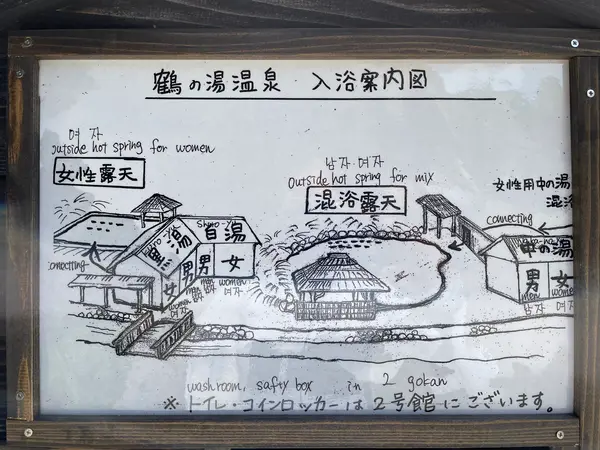 鶴の湯温泉 入浴案内図
여 자
outside hot spring for women
女性露天
남자 여자
Outside hot spring for mix
混浴露天
女性用中の湯
混浴
connecting
connecting
Shiro
白湯
黒湯
男
女
男
女
men
women
여자
여자
中の湯
男
女
men
women
남자
여자
washroom, safty box in 2 gokan
※ トイレ・コインロッカーは2号館にございます。